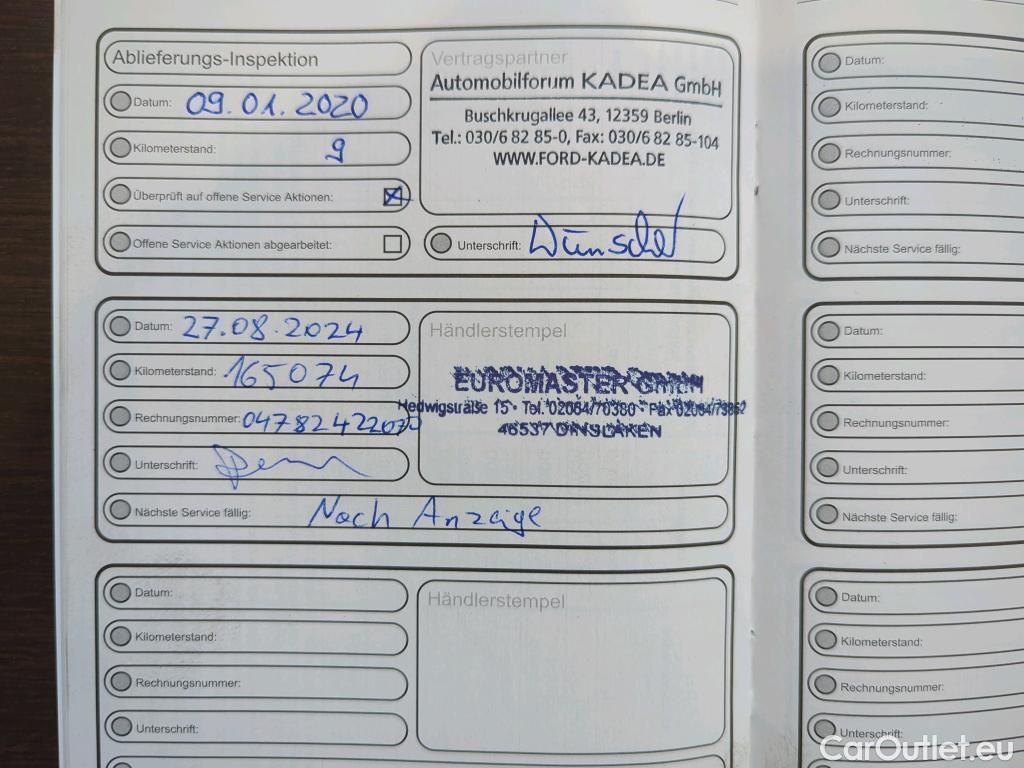 Ablieferungs-Inspektion
Datum: 09.01.2020
Kilometerstand: 9
Überprüft auf offene Service Aktionen:
Offene Service Aktionen abgearbeitet:
Vertragspartner
Automobilforum KADEA GmbH
Buschkrugallee 43, 12359 Berlin
Tel.: 030/6 82 85-0, Fax: 030/6 82 85-104
WWW.FORD-KADEA.DE
Unterschrift:
Datum: 27.08.2024
Kilometerstand: 165074
Rechnungsnummer:
Unterschrift:
Nächste Service fällig: Nach Anzeige
Händlerstempel
EUROMASTER GmbH
Hedwigstraße 15 • Tel. 02064/70380 • Fax
46537 DINSLAKEN
Datum:
Kilometerstand:
Rechnungsnummer:
Unterschrift:
Händlerstempel
Datum:
Kilometerstand:
Rechnungsnummer:
Unterschrift:
Nächste Service fällig:
Datum:
Kilometerstand:
Rechnungsnummer:
Unterschrift:
Nächste Service fällig:
Datum:
Kilometerstand:
Rechnungsnummer:
Unterschrift:
CarOutlet.eu